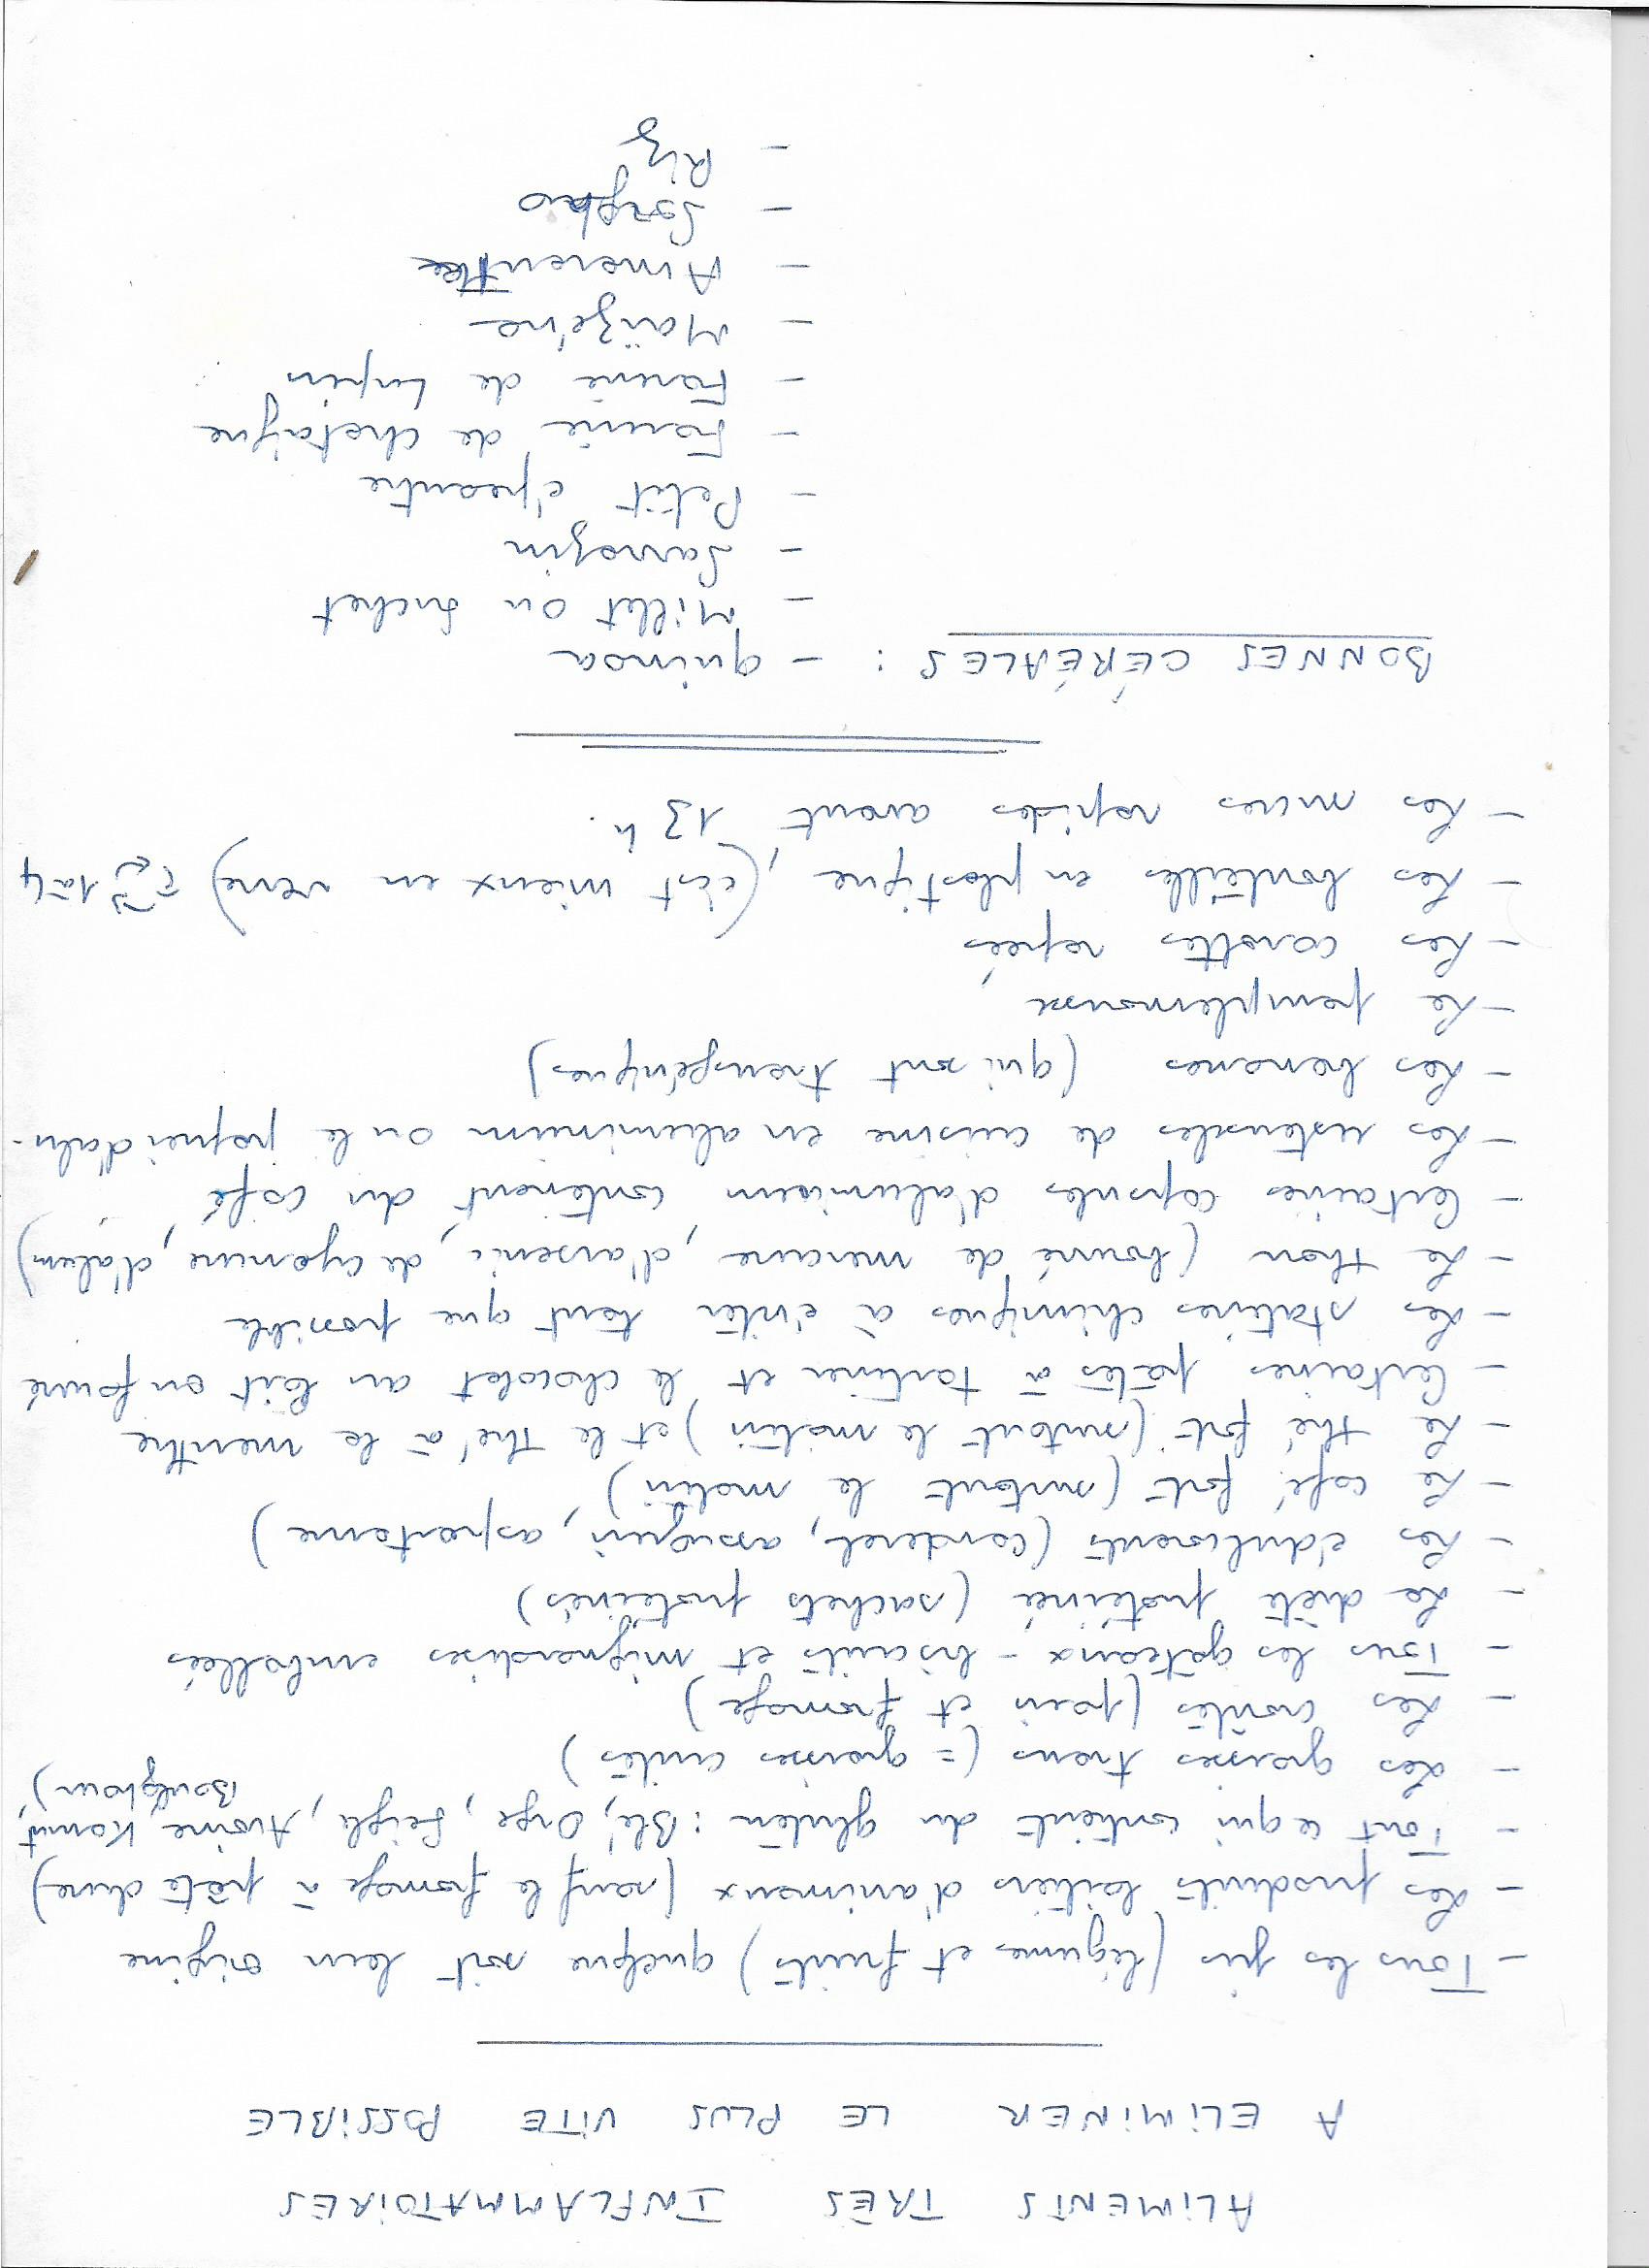 ALIMENTS TRÈS INFLAMMATOIRES
A ELIMINER LE PLUS VITE POSSIBLE
- Tous les jus (légumes et fruits) quelque soit leur origine
- Les produits laitiers d'animaux (sauf le fromage à pâte dure)
- Tout ce qui contient du gluten : Blé, Orge, Seigle, Avoine, Kamut,
Boulghour)
- Les graisses trans (= graisses cuites)
- Les croûtes (pain et fromage)
- Tous les gâteaux - biscuits et mignardises emballés
- La diète protéinée (sachets protéinés)
- Les édulcorants (canderel, assugrin, aspartame)
- Le café fort (surtout le matin)
- Le thé fort (surtout le matin) et le thé à la menthe
- Certaines pâtes à tartiner et le chocolat au lait ou fourré
- Les statines chimiques à éviter tant que possible
- Le thon (bourré de mercure, d'arsenic, de cyanure, d'alum)
- Certaines capsules d'aluminium contenant du café
- Les ustensiles de cuisine en aluminium ou le papier d'alu-
- Les bananes (qui sont transgéniques)
- Le pamplemousse
- Les carottes rapées
- Les bouteilles en plastique, (c'est mieux en verre) 1 à 4
- Les sucres rapides avant 13 h.
BONNES CÉRÉALES : - quinoa
- Millet ou Suchet
- Sarrazin
- Petit épeautre
- Farine de chataigne
- Farine de Lupin
- Maïzena
- Amaranthe
- Sorgho
- Riz